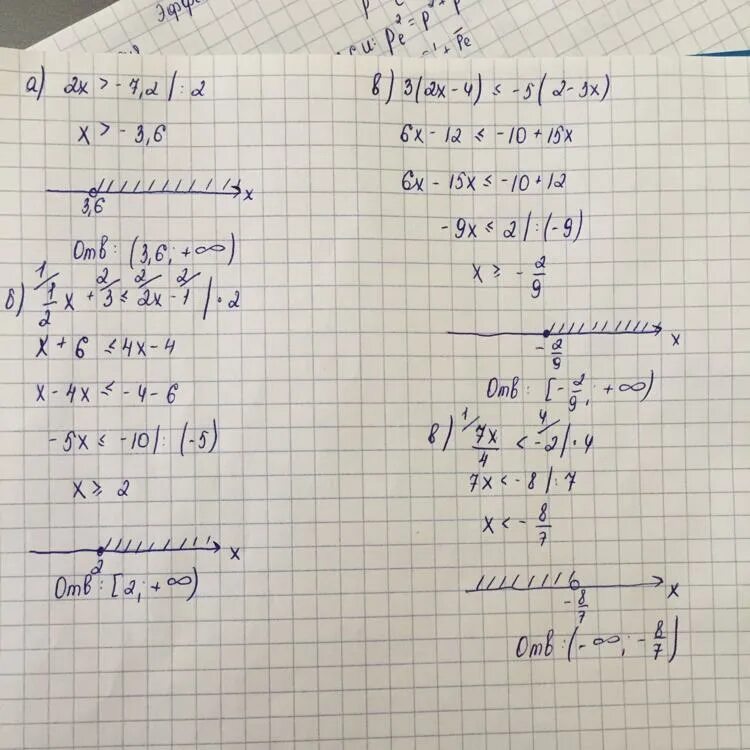 Эффе
Pe² = p² + p
а) 2x > - 7,2 | : 2
x > - 3,6
3,6 x
Отв: (3,6; +∞)
1/ 2/ 2/ 2/
б) 1/2 x + 3 ≤ 2x - 1 | · 2
x + 6 ≤ 4x - 4
x - 4x ≤ - 4 - 6
- 5x ≤ - 10 | : (-5)
x ≥ 2
2 x
Отв: [2; +∞)
в) 3(2x - 4) ≤ -5(2 - 3x)
6x - 12 ≤ -10 + 15x
6x - 15x ≤ -10 + 12
- 9x ≤ 2 | : (-9)
x ≥ - 2/9
- 2/9 x
Отв: [- 2/9; +∞)
1/ 4/
в) 7x/4 < -2 | · 4
7x < - 8 | : 7
x < - 8/7
- 8/7 x
Отв: (- ∞; - 8/7)